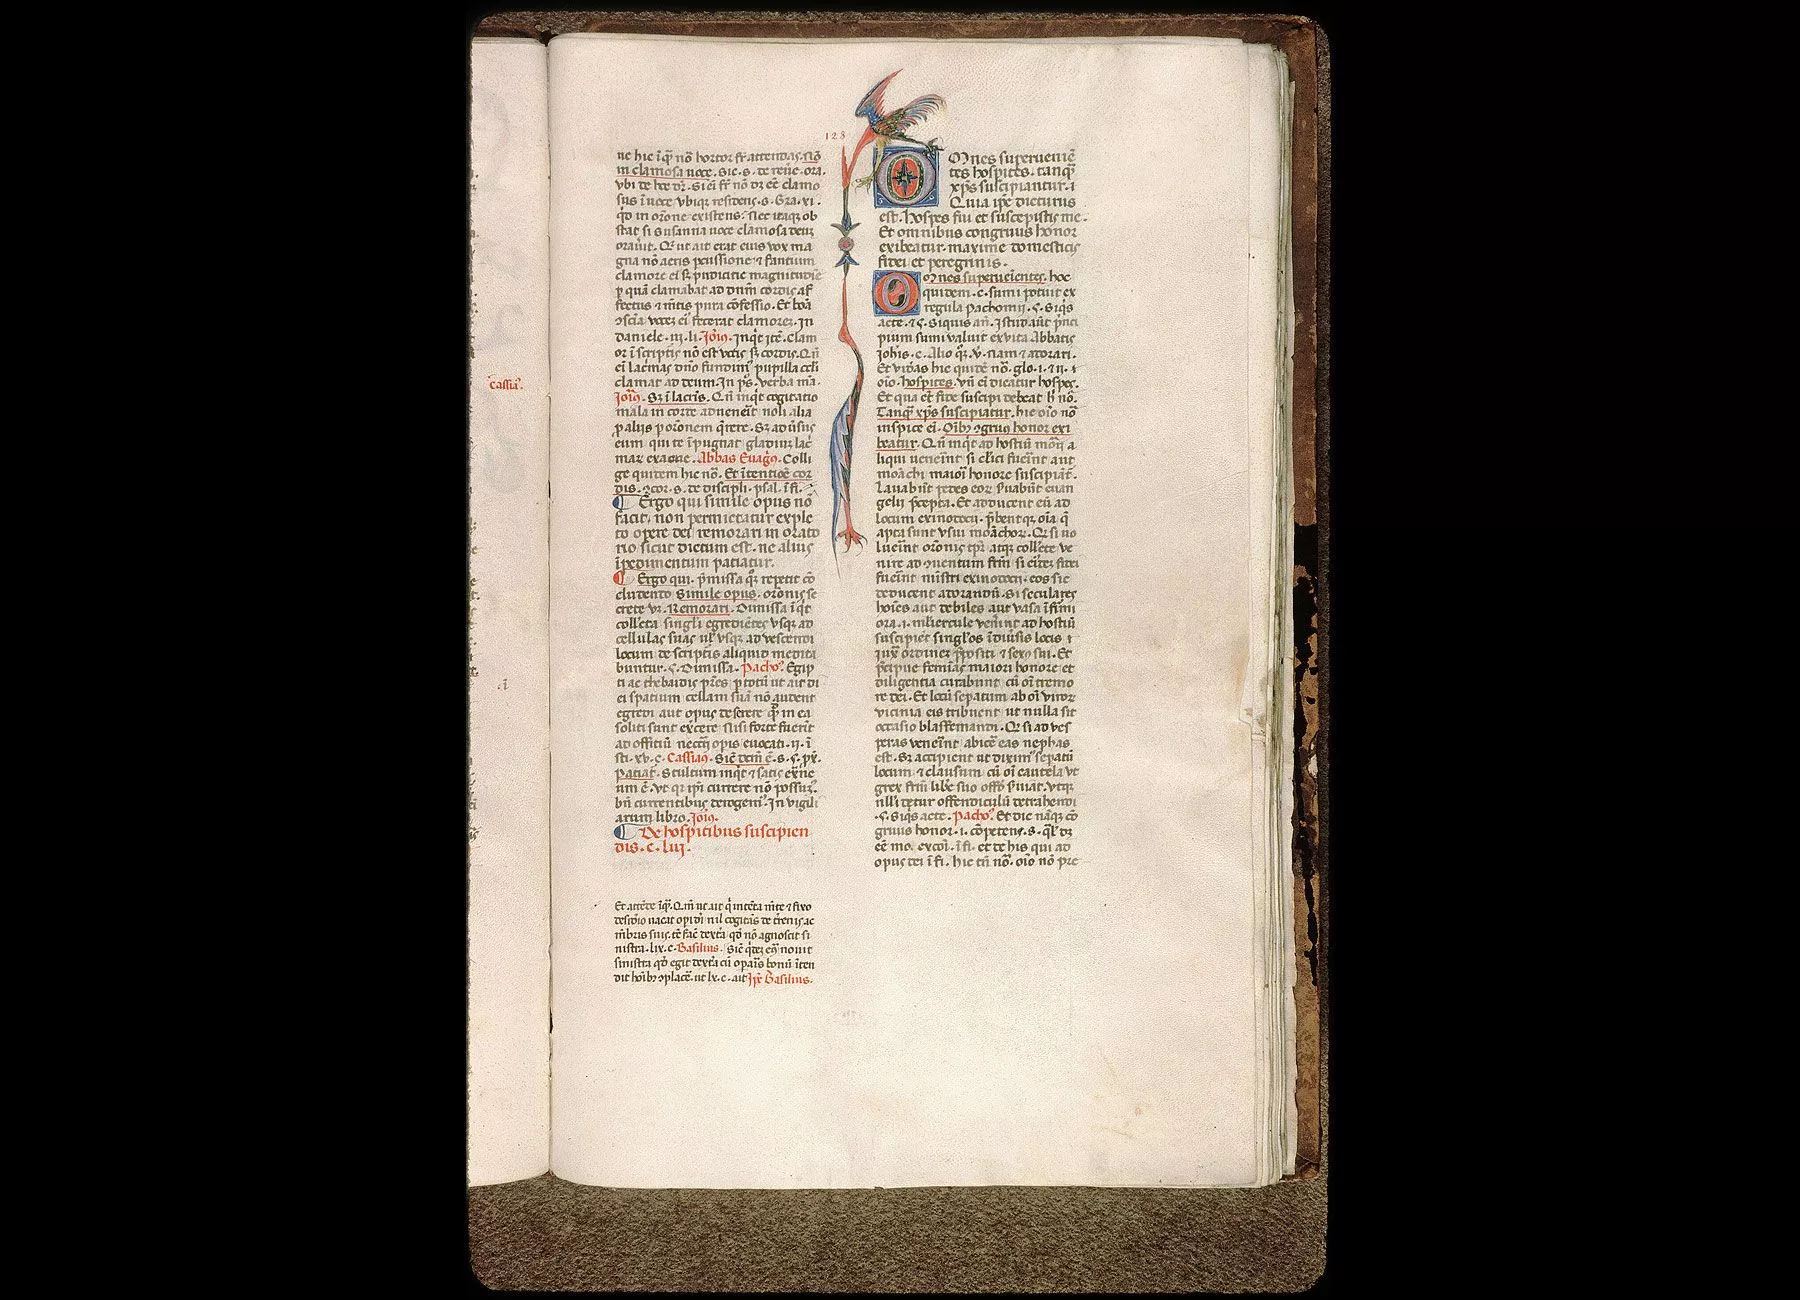 128
cassia⁹.
ne hic iq̄ nō hortor fr̄ attendas. Nō
in clamosa uoce. Sic. s. de reūe. ora.
vbi de hoc dr̄. Si ei fr̄ nō dȝ eē clamo
sus ī uoce vbiq̨ residens. s. Gra. xi.
qd in orōne existens. Nec itaq̨ ob
stat si susanna uoce clamosa deuȝ
orauit. Qȝ ut ait erat eius vox ma
gna nō aeris pcussione ⁊ fantium
clamore ei sȝ pudicitie magnitudīe
p quā clamabat ad dnm cordis af
fectus ⁊ mtis pura cōfessio. Et boā
ꝯscīa voceȝ ei fecerat clamoreȝ. In
daniele. iii. li. Joiu⁹. Inqt itē. Clam
or ī scriptis nō est vocis sȝ cordis. Qn̄
ei lac̄mas dn̄o fundim⁹ pupilla celi
clamat ad deum. In ps. verba m̄a.
Joiu⁹. Sȝ ī lacris. Qn̄ inqt cogitatio
mala in corde aduenēit noli alia
p alijs p orōnem q̄rere. Sȝ aduersus
eum qui te īpugnat gladiuȝ lac̄
maȝ exacue. Abbas Euagi⁹. Colli
ge quidem hic nō. Et ītentiōe cor
dis. ꝯcor. s. de discipli. psal. ī fi.
Ergo qui simile opus nō
facit. non permictatur exple
to opere dei remorari in orato
rio sicut dictum est. ne alius
īpedimentum patiatur.
Ergo qui. pmissa qȝ repetit cō
cludendo Simile opus. orōnis se
crete vȝ. Remorari. Dimissa īqt
collecta singli egrediētes vsqȝ ad
cellulas suas ul̄ vsqȝ ad vescendi
locum de scriptis aliquid medita
buntur. c. Dimissa. Pacho⁹. Egip
ti ac thebaidis pr̄es p totū ut ait di
ei spatium cellam suā nō audent
egredi aut opus deserere q̄ in ea
soliti sunt exc̄ere Nisi forte fuerīt
ad offitiū necc̄i opis euocati. ii. ī
sti. xv. c. Cassian⁹. Sic̄ dcm̄ ē. s. c. px.
Patiat̄. Stultum inqt ⁊ satis ex̄ne
um ē. vt qȝ ipi currere nō possuȝ.
bn̄ currentibus derogem⁹. In vigili
arum libro. Joiu⁹.
De hospitibus suscipien
dis. c. liij.
Et attēde iq̄. Qm̄ ut ait q̄ intēta mte ⁊ fixo
desid̄io uacat opi dī nil cogitās de ēt̄renis ac
mbris suis. tc̄ fac̄ dext̄a qd nō agnoscit si
nistra. lix. c. Basilius. Sic̄ q̄deȝ eꝯ̄ nouit
sinistra qd egit dext̄a cū opāis bonū īten
dit hoībȝ ꝯplac̄e. ut lx. c. ait Ipe Basilius.
Omnes superueniē
tes hospites. tanqȝ
xps̄ suscipiantur. i
Quia ipe dicturus
est. Hospes fui et suscepistis me.
Et omnibus congruus honor
exibeatur. maxime domesticis
fidei et peregrinis.
Omnes superueīentes. hoc
quidem. c. sumi potuit ex
regula Pachomij. c. Siqs
acce. ⁊ c. Siquis añ. Istud aūt pnci
pium sumi valuit ex vita Abbatis
Johīs. c. Alio qȝ. v. nam ⁊ adorari.
Et vidas hic quidē nō. glo. i. ⁊ ii. i
oīo. hospites. vn̄ ei dicatur hospes.
Et qua ēt fide suscipi debeat h̄ nō.
Tanqȝ xps̄ suscipiatur. hic oīo nō
inspice ei. Oībȝ ꝯgruus honor exi
beatur. Qn̄ inqt ad hostiū moñ a
liqui uenēint si clici fuēint aut
moachi maiori honore suscipiāt.
Lauabūt pedes eoȝ s̄uabūt euan
gelij pc̄epta. Et adducent eū ad
locum exinodocij. pbentqȝ oīa q̄
apta sunt vsui moachoȝ. Qȝ si uo
luēint orōnis tpr̄ atqȝ collecte ve
nire ad ꝯuentum frm̄ si eideȝ fidei
fuēint ministri exinodocij. eos sic
deducent adorandū. Si seculares
hoīes aut debiles aut vasa īfirmi
ora. i. mliercule venīnt ad hostiū
suscipiēt singl̄os īdiūsis locis ⁊
iux̄ ordineȝ ppositi ⁊ sexȝ sui. Et
pc̄ipue feminas maiori honore et
diligentia curabunt cū oī tremo
re dei. Et locū sepatum ab oī viroȝ
vicinia eis tribuent ut nulla sit
occasio blasfemandi. Qȝ si ad ves
peras venēint abicē eas nephas
est. Sȝ accipient ut dixim⁹ sepatū
locum ⁊ clausum cū oī cautela vt
grex frm̄ lib̄e suo offō s̄uiat. vtqȝ
nlli detur offendiculū detrahendi
c. Siqs acce. Pacho⁹. Et dic namqȝ cō
gruus honor. i. cōpetens. s. q̄l̄ dȝ
eē mo. excoī. ī fi. et de his qui ad
opus dei ī fi. hic tn̄ nō. oīo nō pre